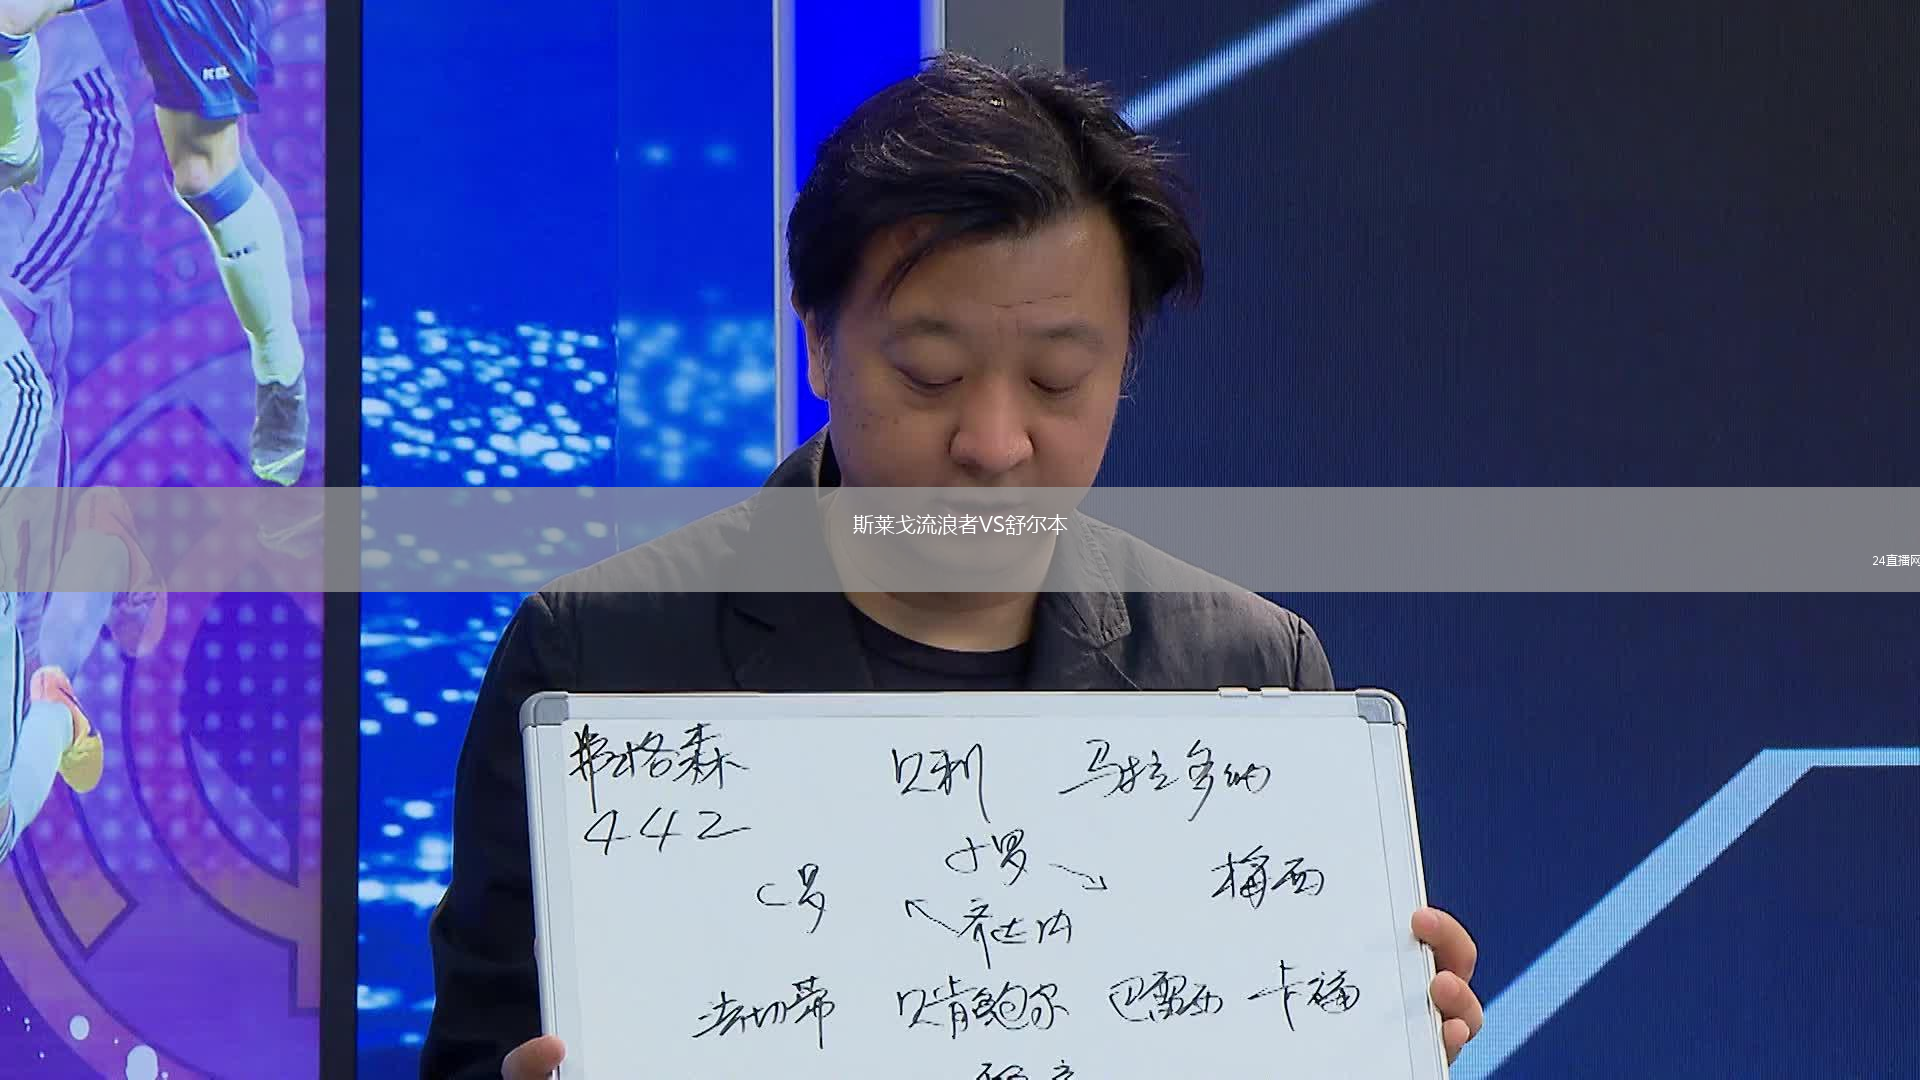 KEL
斯莱戈流浪者VS舒尔本
24直播网
弗格森 贝利 马拉多纳
442
小罗
C罗 梅西
齐达内
法切蒂 贝肯鲍尔 巴雷西 卡福